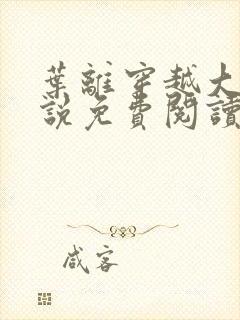 葉離穿越大
說免費閱讀
咸客